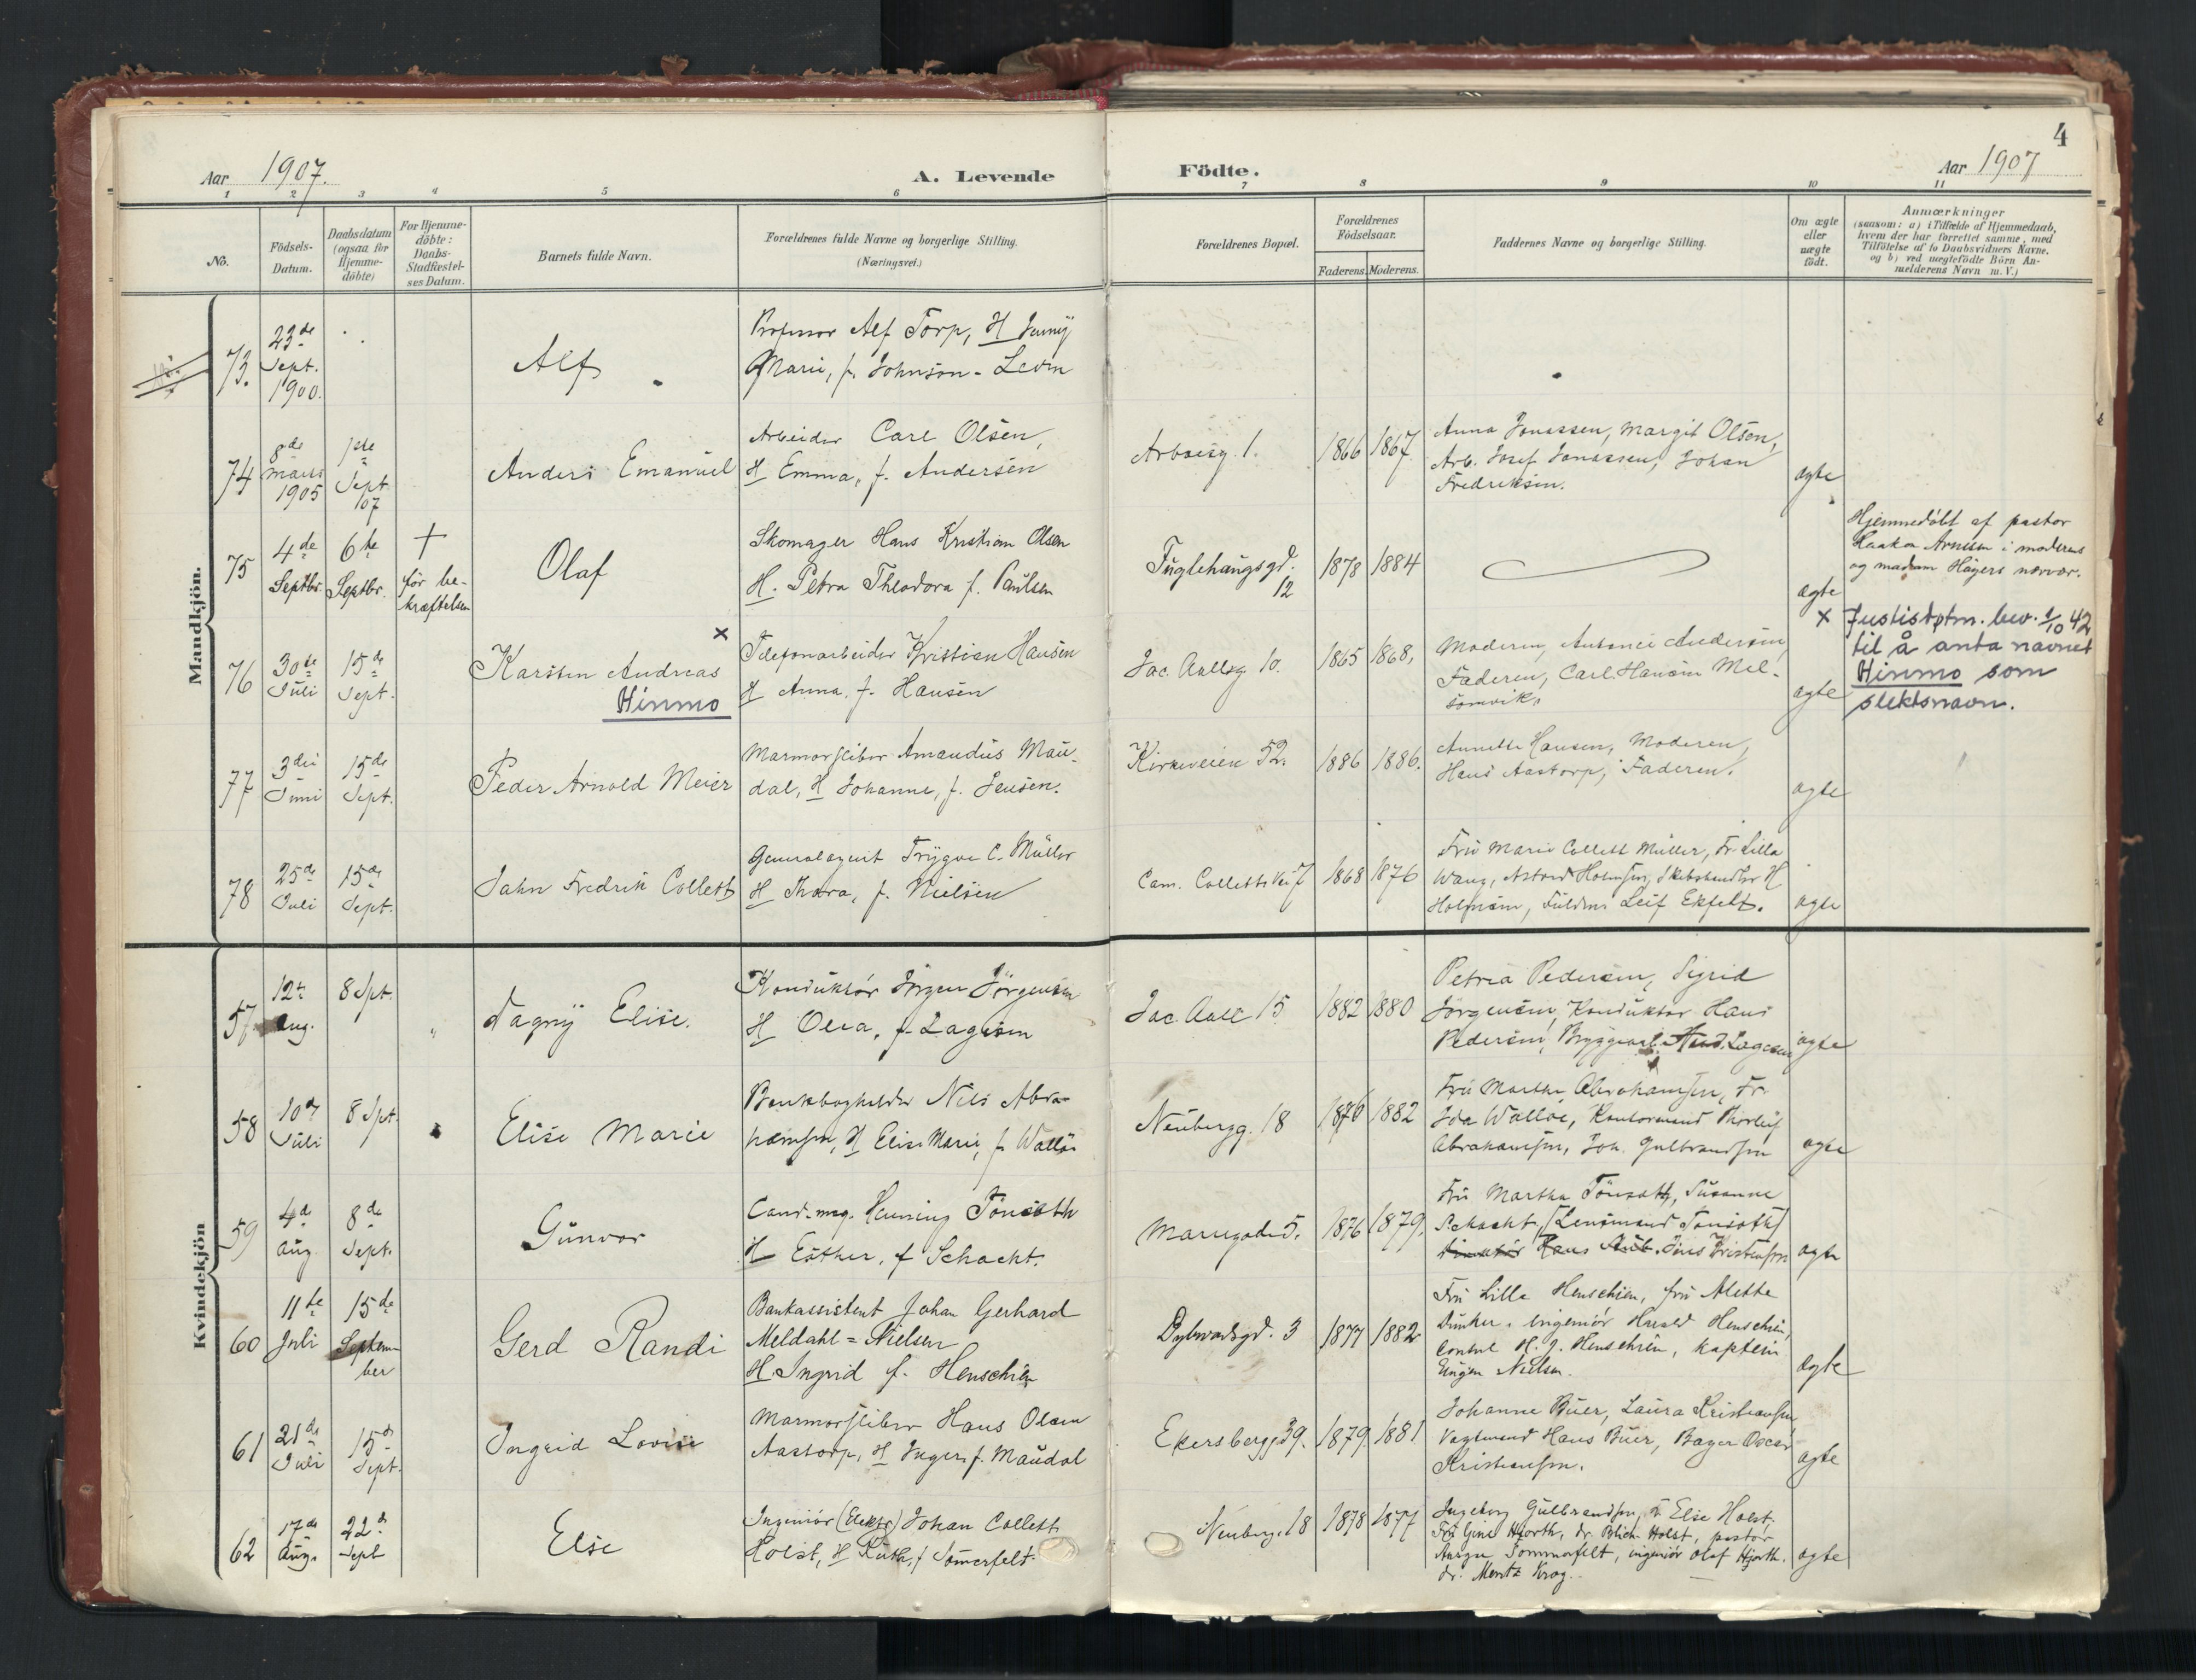 4
Aar 1907.
A. Levende
Födte.
Aar 1907
1 2 3 4 5 6 7 8 9 10 11
No.
Födsels-
Datum.
Daabsdatum
(ogsaa for
Hjemme-
döbte)
For Hjemme-
döbte:
Daabs-
Stadfæstel-
ses Datum.
Barnets fulde Navn.
Forældrenes fulde Navne og borgerlige Stilling.
(Næringsvei.)
Forældrenes Bopæl.
Forældrenes
Födselsaar.
Faderens. Moderens.
Faddernes Navne og borgerlige Stilling.
Om ægte
eller
uægte
födt.
Anmærkninger
(saasom: a) i Tilfælde af Hjemmedaab,
hvem der har forrettet samme, med
Tilföielse af to Daabsvidners Navne.
og b) ved uægtefödte Börn An-
melderens Navn m. V.)
Mandkjön.
73.
23de
Sept.
1900.
Alf
Professor Alf Torp, H Jenny
Marie, f. Johnson-Levin
74
8de
Mars
1905
1ste
Sept.
07
Anders Emanuel
Arbeider Carl Olsen,
H Emma, f. Andersen
Arboesg. 1.
1866
1867
Anna Jonassen, Margit Olsen,
Arb. Josef Jonassen, Johan
Fredriksen.
ægte
75
4de
Septbr.
6te
Septbr.
†
før be-
kræftelsen
Olaf
Skomager Hans Kristian Olsen
H. Petra Theodora f. Paulsen
Fuglehaugsgd.
12
1878
1884
ægte
Hjemmedöbt af pastor
Haakon Arnesen i moderens
og madam Högers nærvær.
76
30te
Juli
15de
Sept.
Karsten Andreas x
Hinmo
Telefonarbeider Kristian Hansen
H Anna, f. Hansen
Jac. Aallsg 10.
1865
1868.
Moderen, Antonie Andersen,
Faderen, Carl Hansen Mel-
somvik.
ægte
x Justisdptm. bev. 1/10 42
til å anta navnet
Hinmo som
slektsnavn.
77
3die
Juni
15de
Sept.
Peder Arnold Meier
Marmorsliber Amandus Mau-
dal, H Johanne, f. Jensen.
Kirkeveien 52.
1886
1886.
Annette Hansen, Moderen,
Hans Aastorp, Faderen.
ægte
78
25de
Juli
15de
Sept.
Jahn Fredrik Collett
Generalagent Trygve C. Müller
H Thora, f. Nielsen
Cam. Colletts Vei 7
1868
1876
Fru Marie Collett Müller, Fr. Lilla
Wang, Astrid Holmsen, Skibshandler H
Holmsen, Fuldm. Leif Ekfelt.
ægte
Kvindekjön
57
12te
Aug.
8 Spt.
Dagny Elise.
Konduktör Jörgen Jörgensen
H Olea, f. Lagesen
Jac. Aall 15.
1882
1880
Petria Pedersen, Sigrid
Jörgensen, Konduktör Hans
Pedersen, Bryggearb. And. Lagesen
ægte
58
10de
Juli
8 Spt.
Elise Marie
Bankbogholder Nils Abra-
hamsen, H Elise Marie, f. Walløe
Neubergg. 18
1876
1882
Fru Marthe Abrahamsen, Fr.
Ida Walløe, Kontormand Thorleif
Abrahamsen, Joh. Gulbrandsen
ægte
59
4de
Aug.
8de
Sept.
Gunvor
Cand. mag. Henning Tönseth
H Esther, f Schacht.
Mariegade 5.
1876
1879.
Fru Martha Tönseth, Susanne
Schacht, [Lensmand Tönseth]
Hans Jens Kristensen
ægte
60
11te
Juli
15de
Septem-
ber
Gerd Randi
Bankassistent Johan Gerhard
Meldahl = Nielsen
H. Ingrid f. Henschien
Dybwadsgd. 3
1877
1882
Fru Lilla Henschien, fru Alette
Dunker, ingeniör Harald Henschien,
H. J. Henschien, kaptein
Nielsen.
ægte
61
21de
Juli
15de
Sept.
Ingrid Lovise
Marmorsliber Hans Olsen
Aastorp, H Inger, f. Maudal
Ekersbergg. 39.
1879.
1881.
Johanne Buer, Laura Kristiansen
Vagtmand Hans Buer, Bager Oscar
Kristiansen.
ægte
62
17de
Aug.
22de
Sept
Else
Ingeniör (Elektr) Johan Collett
Holst, H Ruth, f Sömerfelt
Neubergg. 18
1878
1877
Ingeborg Gulbrandsen, Fr Else Holst.
Fr Gina Hjorth, dr. Blich Holst, pastor
Aage Sommerfelt, ingeniör Olaf Hjorth.
dr. Mentz Krog.
ægte